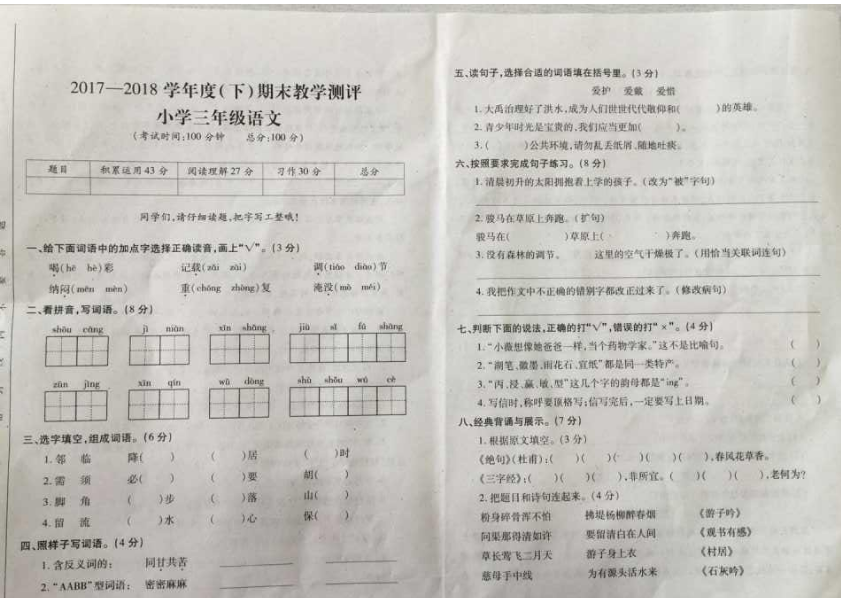 2017—2018 学年度(下)期末教学测评
小学三年级语文
(考试时间:100 分钟 总分:100 分)
题目 积累运用 43 分 阅读理解 27 分 习作 30 分 总分
同学们,请仔细读题,把字写工整哦!
一、给下面词语中的加点字选择正确读音,画上“√”。(3 分)
喝(hē hè)彩 记载(zǎi zài) 调(tiáo diào)节
纳闷(mēn mèn) 重(chóng zhòng)复 淹没(mò méi)
二、看拼音,写词语。(8 分)
shōu cáng jì niàn xīn shǎng jiù sǐ fú shāng
zūn jìng xīn qín wǔ dòng shù shǒu wú cè
三、选字填空,组成词语。(6 分)
1. 邻 临 降( ) ( )居 ( )时
2. 需 须 必( ) ( )要 胡( )
3. 脚 角 ( )步 ( )落 山( )
4. 留 流 ( )水 ( )心 保( )
四、照样子写词语。(4 分)
1. 含反义词的: 同甘共苦
2. “AABB”型词语: 密密麻麻
五、读句子,选择合适的词语填在括号里。(3 分)
爱护 爱戴 爱惜
1. 大禹治理好了洪水,成为人们世世代代敬仰和( )的英雄。
2. 青少年时光是宝贵的,我们应当更加( )。
3. ( )公共环境,请勿乱丢纸屑、随地吐痰。
六、按照要求完成句子练习。(8 分)
1. 清晨初升的太阳拥抱着上学的孩子。(改为“被”字句)
2. 骏马在草原上奔跑。(扩句)
骏马在( )草原上( )奔跑。
3. 没有森林的调节。 这里的空气干燥极了。(用恰当关联词连句)
4. 我把作文中不正确的错别字都改正过来了。(修改病句)
七、判断下面的说法,正确的打“√”,错误的打“×”。(4 分)
1. “小薇想像她爸爸一样,当个药物学家。”这不是比喻句。 ( )
2. “湖笔、徽墨、雨花石、宣纸”都是同一类特产。 ( )
3. “丙、浸、赢、敏、型”这几个字的韵母都是“ing”。 ( )
4. 写信时,称呼要顶格写;信写完后,一定要写上日期。 ( )
八、经典背诵与展示。(7 分)
1. 根据原文填空。(3 分)
《绝句》(杜甫):( )( )( )( )( ),春风花草香。
《三字经》:( )( )( ),非所宜。( )( )( ),老何为?
2. 把题目和诗句连起来。(4 分)
粉身碎骨浑不怕 拂堤杨柳醉春烟 《游子吟》
问渠那得清如许 要留清白在人间 《观书有感》
草长莺飞二月天 游子身上衣 《村居》
慈母手中线 为有源头活水来 《石灰吟》